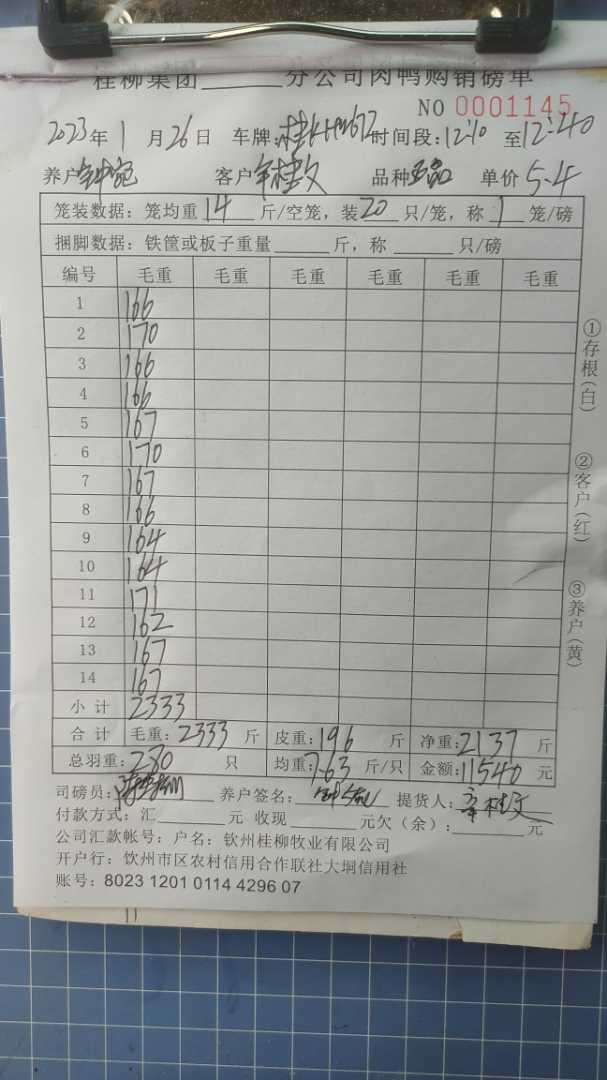 桂柳集团______分公司肉鸭购销磅单
NO 0001145
2023年1月26日 车牌: 时间段:12:10至12:40
养户 客户 品种 单价5.4
笼装数据：笼均重14斤/空笼，装20只/笼，称1笼/磅
捆脚数据：铁筐或板子重量______斤，称______只/磅
编号 毛重 毛重 毛重 毛重 毛重 毛重
1 166
2 170
3 166
4 166
5 167
6 170
7 167
8 166
9 164
10 164
11 171
12 162
13 167
14 167
小计 2333
合计 毛重:2333斤 皮重:196斤 净重:2137斤
总羽重:280只 均重:7.63斤/只 金额:11540元
司磅员: 养户签名: 提货人:
付款方式：汇______元 收现______元欠（余）:______元
公司汇款帐号：户名：钦州桂柳牧业有限公司
开户行：钦州市区农村信用合作联社大垌信用社
账号：8023 1201 0114 4296 07
①存根(白)
②客户(红)
③养户(黄)